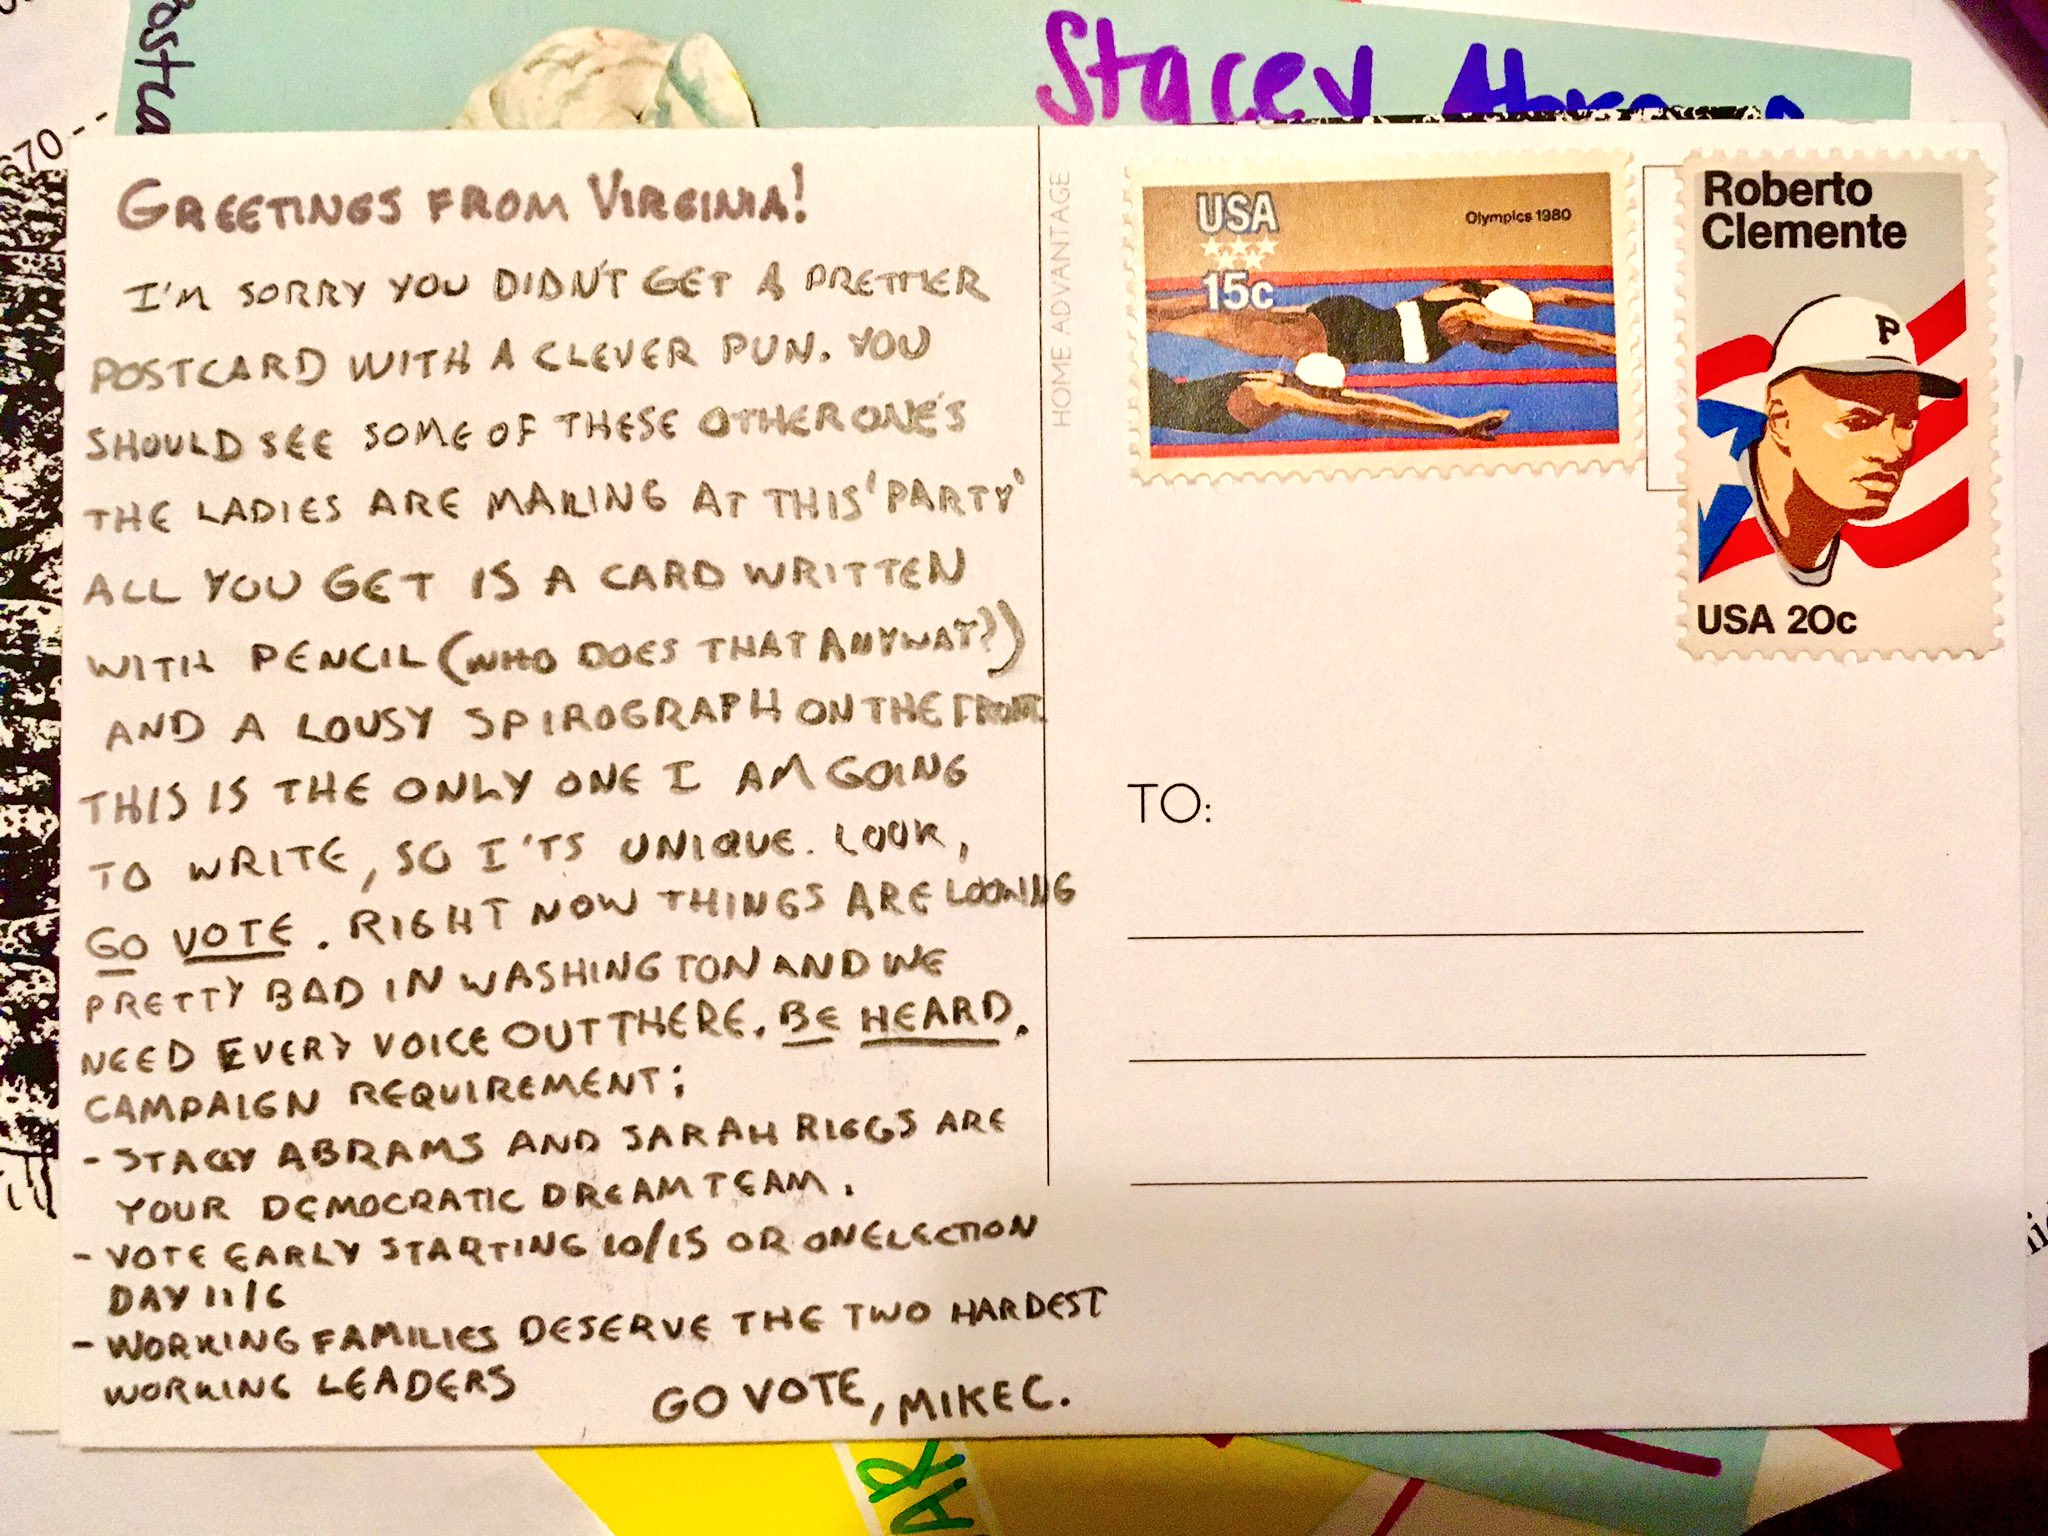 Stacey
GREETINGS FROM VIRGINIA!
I'M SORRY YOU DIDN'T GET A PRETTIER
POSTCARD WITH A CLEVER PUN. YOU
SHOULD SEE SOME OF THESE OTHER ONE'S
THE LADIES ARE MAKING AT THIS 'PARTY'
ALL YOU GET IS A CARD WRITTEN
WITH PENCIL (WHO DOES THAT ANYWAY?)
AND A LOUSY SPIROGRAPH ON THE FRONT
THIS IS THE ONLY ONE I AM GOING
TO WRITE, SO I'TS UNIQUE. LOOK,
GO VOTE. RIGHT NOW THINGS ARE LOOKING
PRETTY BAD IN WASHINGTON AND WE
NEED EVERY VOICE OUT THERE. BE HEARD.
CAMPAIGN REQUIREMENT:
- STACEY ABRAMS AND SARAH RIGGS ARE
YOUR DEMOCRATIC DREAM TEAM.
- VOTE EARLY STARTING 10/15 OR ON ELECTION
DAY 11/6
- WORKING FAMILIES DESERVE THE TWO HARDEST
WORKING LEADERS
GO VOTE, MIKE C.
HOME ADVANTAGE
USA
15c
Olympics 1980
Roberto
Clemente
P
USA 20c
TO: